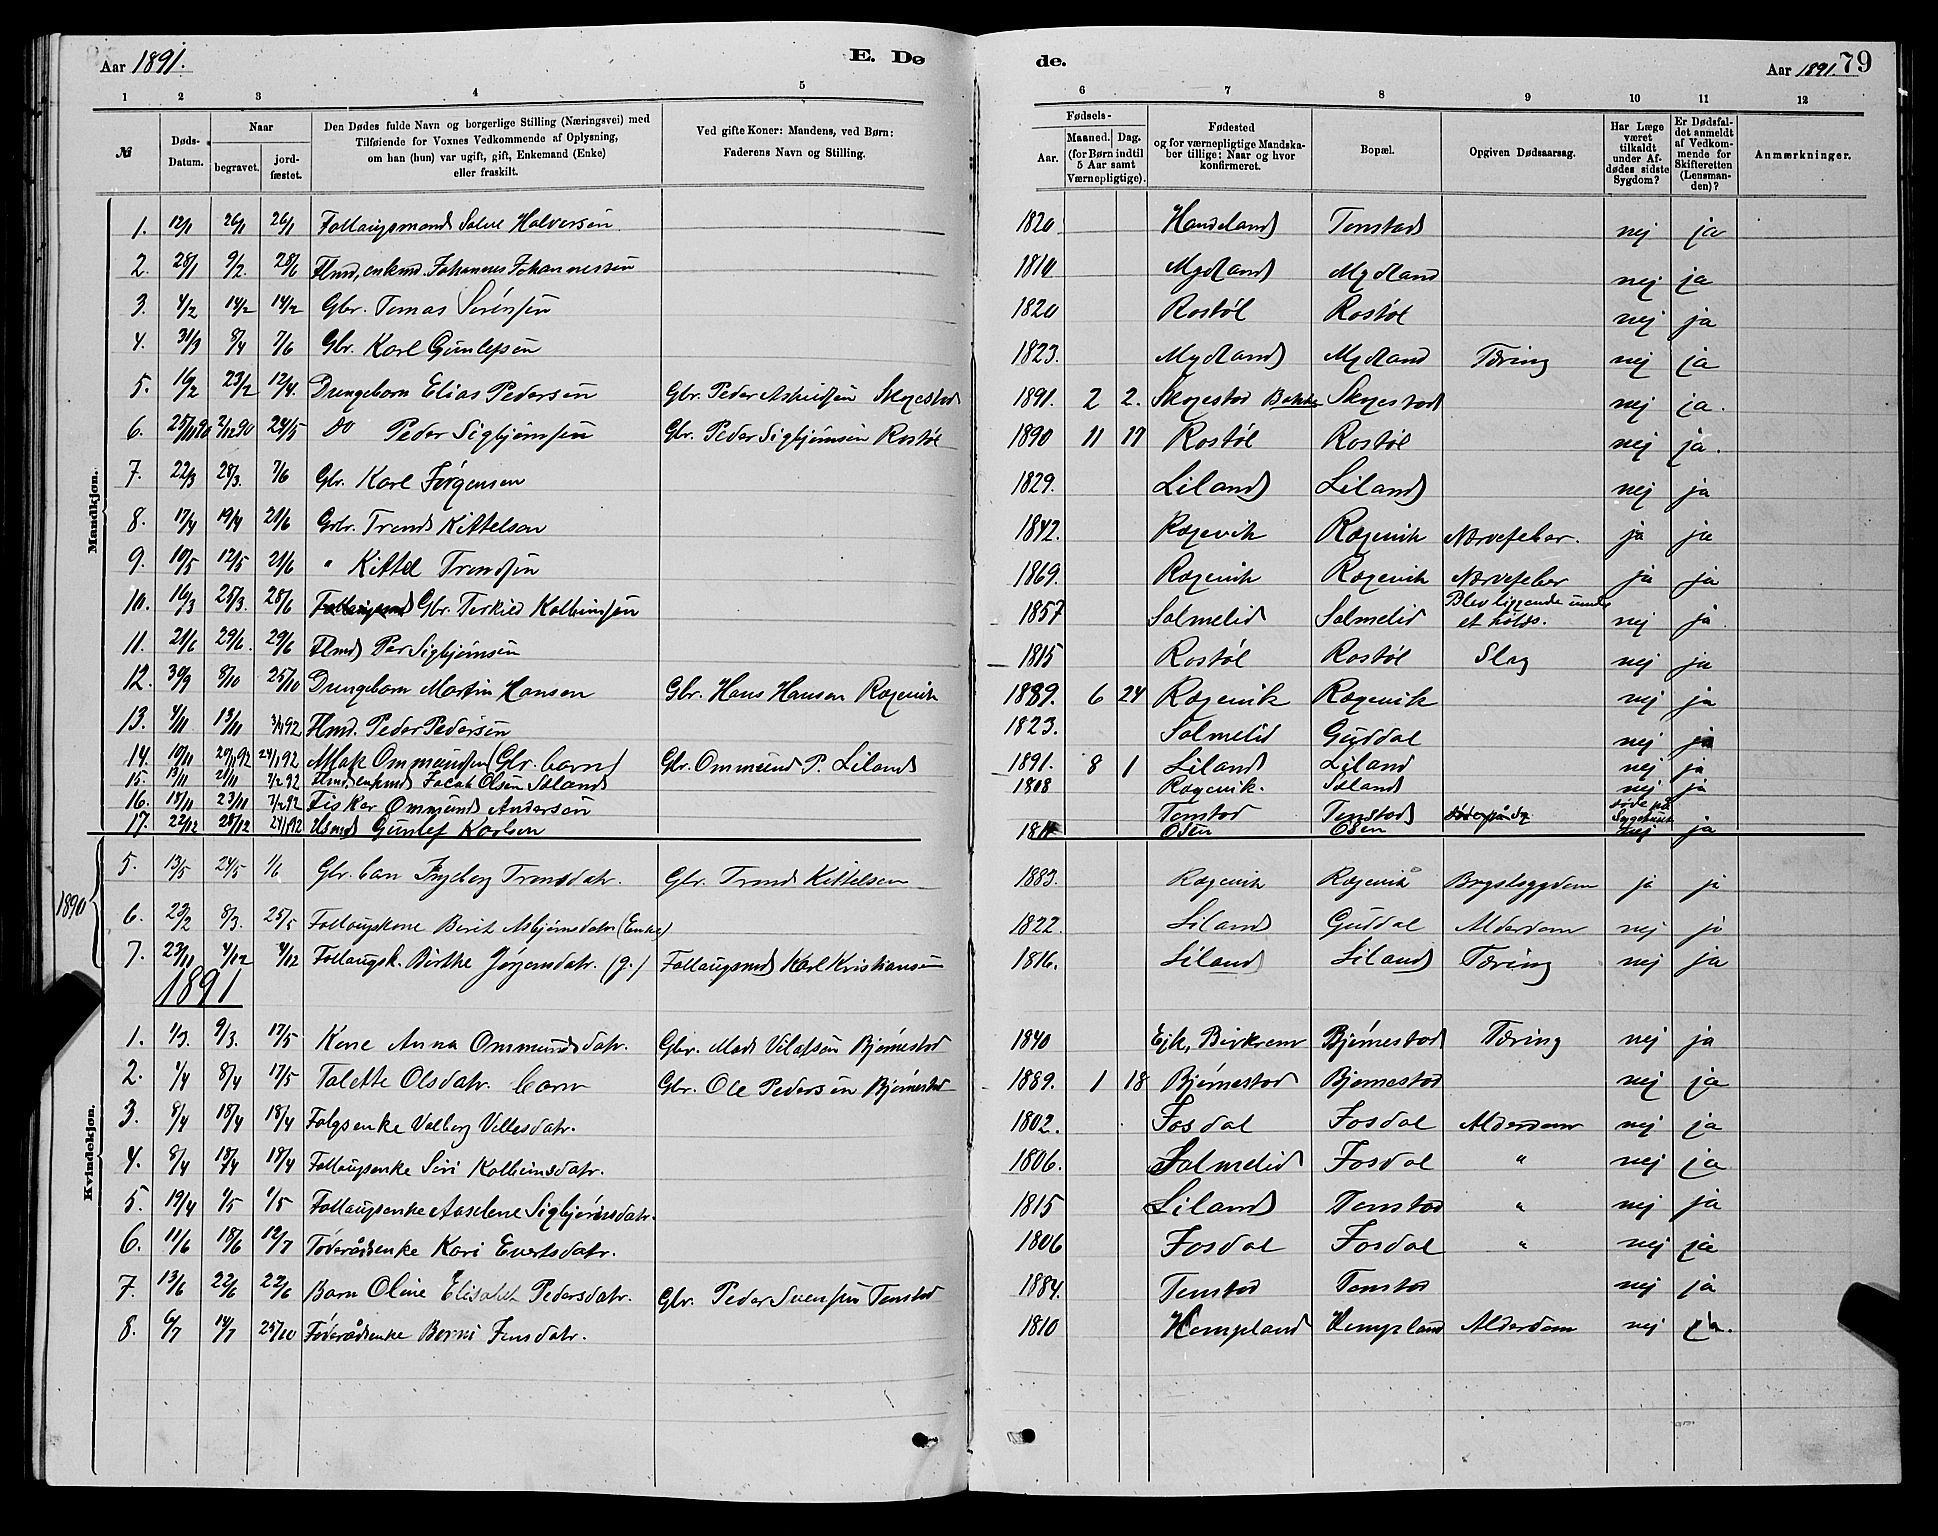 Aar 1891. E. Dø
de. Aar 1891. 79
1 2 3 4 5
6 7 8 9 10 11 12
№ Døds-Datum. Naar begravet. jordfæstet. Den Dødes fulde Navn og borgerlige Stilling (Næringsvei) med Tilføiende for Voxnes Vedkommende af Oplysning, om han (hun) var ugift, gift, Enkemand (Enke) eller fraskilt. Ved gifte Koner: Mandens, ved Børn: Faderens Navn og Stilling.
Fødsels- Aar. Maaned. Dag. (for Børn indtil 5 Aar samt Værnepligtige). Fødested og for værnepligtige Mandskaber tillige: Naar og hvor konfirmeret. Bopæl. Opgiven Dødsaarsag. Har Læge været tilkaldt under Afdødes sidste Sygdom? Er Dødsfaldet anmeldt af Vedkommende for Skifteretten (Lensmanden)? Anmærkninger.
Mandkjøn.
1. 12/1 26/1 26/1 Follaugsmand Salve Halversen 1820 Handeland Tonstad nej ja
2. 28/1 9/2. 28/6 Flmd, enkmd. Johannes Johannessen 1810 Mydland Mydland nej ja
3. 4/2 14/2 14/2 Gbr. Tomas Sørensen 1820 Rostøl Rostøl nej ja
4. 31/3 8/4 7/6 Gbr. Karl Gunlefsen 1823. Mydland Mydland Tæring nej ja
5. 16/2 23/2 12/4. Drengebarn Elias Pedersen Gbr. Peder Askildsen Skogestad 1891. 2 2. Skogestad Bakke Skogestad nej ja.
6. 25/11 90 2/12 90 24/5 Do Peder Sigbjørnsen Gbr. Peder Sigbjørnsen Rostøl 1890 11 17 Rostøl Rostøl nej ja.
7. 22/3 28/3. 7/6 Gbr. Karl Jørgensen 1829. Liland Liland nej ja
8. 17/4 19/4 21/6 Gbr. Trond Kittelsen 1842. Rægevik Rægevik Nervefeber. ja ja
9. 10/5 17/5 21/6 " Kittel Trondsen 1869. Rægevik Rægevik Nervefeber ja ja
10. 16/3 25/3. 28/6 Gbr. Terkild Kolbeinsen 1857 Salmelid Salmelid Blev liggende under et holds. nej ja.
11. 21/6 29/6. 29/6 Flmd Per Sigbjørnsen 1815 Rostøl Rostøl Slag nej ja
12. 30/9 8/10 25/10 Drengebarn Martin Hansen Gbr. Hans Hansen Rægevik 1889. 6 24 Rægevik Rægevik nej ja
13. 4/11 13/11 3/4 92 Flmd. Peder Pedersen 1823. Salmelid Guddal nej ja
14. 10/11 24/1 92 Aslak Ommundsen (Gbr. barn) Gbr. Ommund P. Liland 1891. 8 1 Liland Liland nej ja
15. 13/11 21/11 7/2 92 Flmd, enkmd Jacob Olsen Sæland 1808 Rægevik. Sæland nej ja
16. 18/11 23/11 7/2 92 Fisker Ommund Andersen Tonstad Tonstad døde på Sygehuset
17. 22/12 28/12 24/1 92 Gunlef Karlsen Osen Osen nej ja
1890
5. 13/5 24/5 1/6 Gbr. barn Ingeborg Trondsdatr. Gbr. Trond Kittelsen 1883. Rægevik Rægevik Brystsygdom ja ja
6. 23/2 8/3. 25/5 Follaugskone Berit Asbjørnsdatr (Enke) 1822. Liland Guddal Alderdom nej ja
7. 23/11 4/12 4/12 Follaugsk. Birthe Jørgensdatr. (g.) Follaugsmd Karl Kristiansen 1816. Liland Liland Tæring nej ja
1891
Kvindekjøn.
1. 1/3. 9/3. 17/5 Kone Anna Ommundsdatr. Gbr. Mads Vilafsen Bjørnestad 1840 Ejk, Birkrem Bjørnestad Tæring nej ja
2. 1/4 8/4 17/5 Talette Olsdatr. barn Gbr. Ole Pedersen Bjørnestad 1889. 1 18 Bjørnestad Bjørnestad nej ja
3. 8/4 18/4 18/4 Folgsenke Valborg Villesdatr. 1802. Josdal Josdal Alderdom nej ja
4. 8/4 18/4 18/4 Follaugsenke Siri Kolbeinsdatr. 1806. Salmelid Josdal " nej ja
5. 19/4 1/5 1/5 Follaugsenke Aaselene Sigbjørnsdatr. 1815 Liland Tonstad " nej ja
6. 11/6 18/6 12/7 Føderådsenke Kari Evertsdatr. 1806 Josdal Josdal " nej ja
7. 13/6 22/6 22/6 Barn Oline Elisabet Pedersdatr. Gbr. Peder Svensen Tonstad 1884. Tonstad Tonstad nej ja
8. 6/7 14/7 25/10 Føderådsenke Berni Jensdatr. 1810 Hompland Hompland Alderdom nej ja.